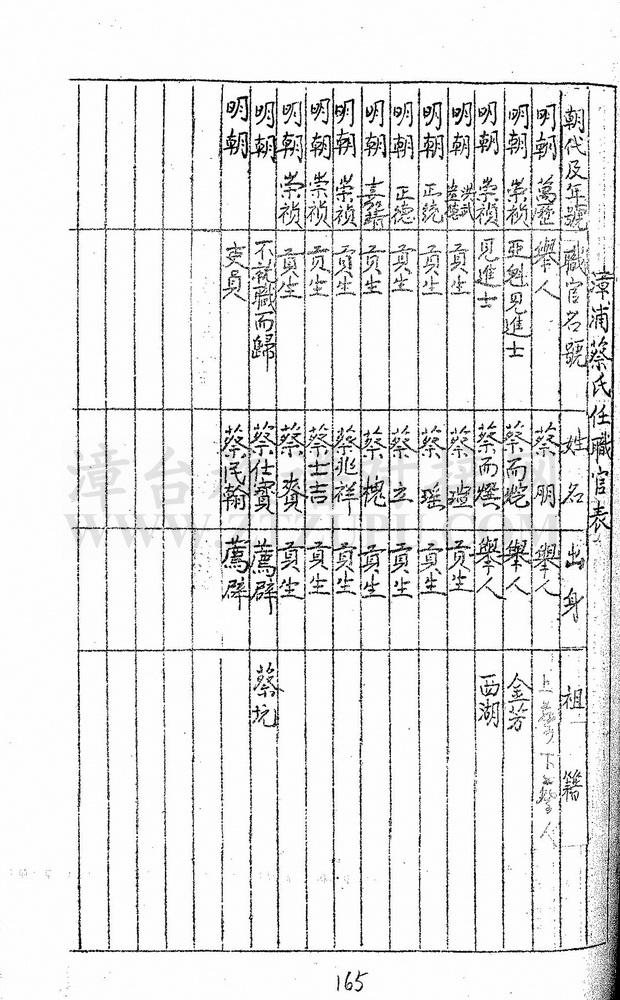 漳浦蔡氏任職官表
朝代及年號 職官名號 姓名 出身 祖籍
明朝 萬歷 舉人 蔡朋 舉人
明朝 崇禎 亞魁見進士 蔡而烷 舉人 金芳
明朝 崇禎 見進士 蔡而熯 舉人 西湖
明朝 洪武 貢生 蔡瑄 貢生
明朝 正統 貢生 蔡瑶 貢生
明朝 正德 貢生 蔡立 貢生
明朝 貢生 蔡槐 貢生
明朝 崇禎 貢生 蔡兆祥 貢生
明朝 崇禎 貢生 蔡士吉 貢生
明朝 崇禎 貢生 蔡賚 貢生
明朝 不就職而歸 蔡仕賓 薦辟 蔡坑
明朝 吏員 蔡民翰 薦辟
165